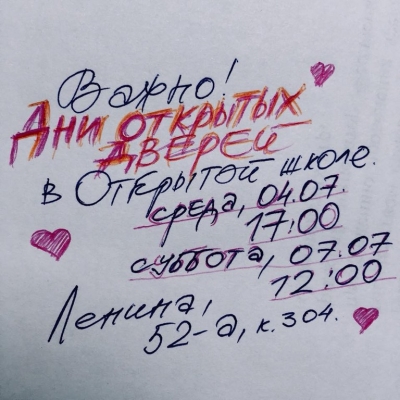 Важно!
Дни открытых
дверей
в Открытой школе.
среда, 04.07.
17:00
суббота, 07.07
12:00
Ленина,
52-а, к. 304.